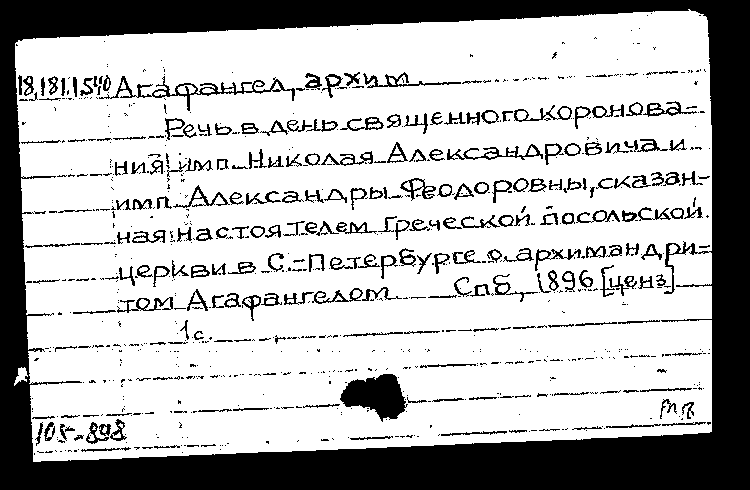 18.181.1.540 Агафангел, архим.
Речь в день священного коронова-
ния имп. Николая Александровича и
имп. Александры Феодоровны, сказан-
ная настоятелем греческой посольской
церкви в С.-Петербурге о. архимандри-
том Агафангелом. Спб, 1896 [ценз]
1 с.
105-898